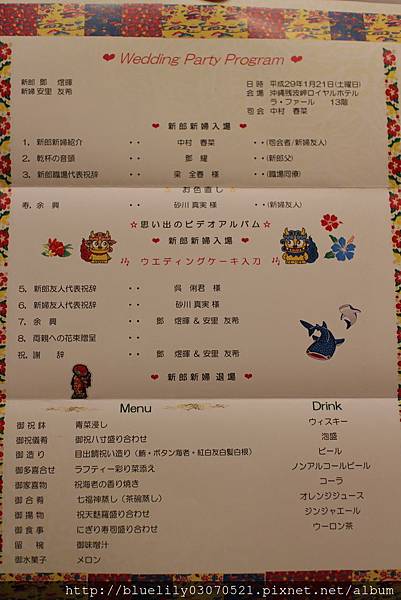 ❤ Wedding Party Program ❤
新郎 鄭 煜暉
新婦 安里 友希
日 時 平成29年1月21日(土曜日)
会 場 沖縄残波岬ロイヤルホテル
ラ・ファール 13階
司 会 中村 春菜
❤ 新郎新婦入場 ❤
1. 新郎新婦紹介 ・・ 中村 春菜 ・・(司会者/新婦友人)
2. 乾杯の音頭 ・・ 鄭 耀 ・・(新郎父)
3. 新郎職場代表祝辞 ・・ 梁 全春 様 ・・(職場同僚)
お色直し
寿. 余 興 ・・ 砂川 真実 様 ・・(新婦友人)
☆思い出のビデオアルバム☆
❤ 新郎新婦入場 ❤
ウエディングケーキ入刀
5. 新郎友人代表祝辞 ・・ 呉 俐君 様
6. 新婦友人代表祝辞 ・・ 砂川 真実 様
7. 余 興 ・・ 鄭 煜暉 & 安里 友希
8. 両親への花束贈呈 ・・
祝. 謝 辞 ・・ 鄭 煜暉 & 安里 友希
❤ 新郎新婦 退場 ❤
Menu
御 祝 鉢 青菜浸し
御祝儀肴 御祝八寸盛り合わせ
御 造 り 目出鯛祝い造り(鮪・ボタン海老・紅白友白髪白根)
御多喜合せ ラフティー彩り菜添え
御家喜物 祝海老の香り焼き
御 合 肴 七福神蒸し(茶碗蒸し)
御 揚 物 祝天麩羅盛り合わせ
御 食 事 にぎり寿司盛り合わせ
留 椀 御味噌汁
御水菓子 メロン
Drink
ウィスキー
泡盛
ビール
ノンアルコールビール
コーラ
オレンジジュース
ジンジャエール
ウーロン茶
http://bluelily03070521.pixnet.net/album